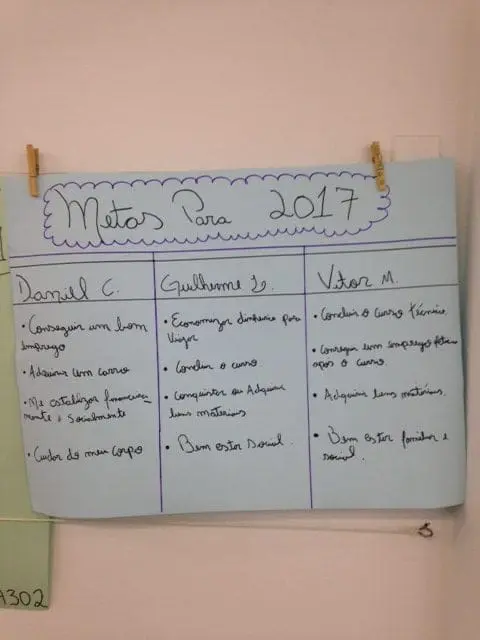 Metas Para 2017
Daniel C.
• Conseguir um bom
emprego
• Adquirir um carro
• Me estabilizar financeira-
mente e socialmente
• Cuidar do meu corpo
Guilherme L.
• Economizar dinheiro para
Viajar
• Concluir o curso
• Conquistar ou Adquirir
bens materiais
• Bem estar social.
Vitor M.
• Concluir o curso técnico.
• Conseguir um emprego
após o curso.
• Adquirir bens materiais.
• Bem estar familiar e
social.
A302